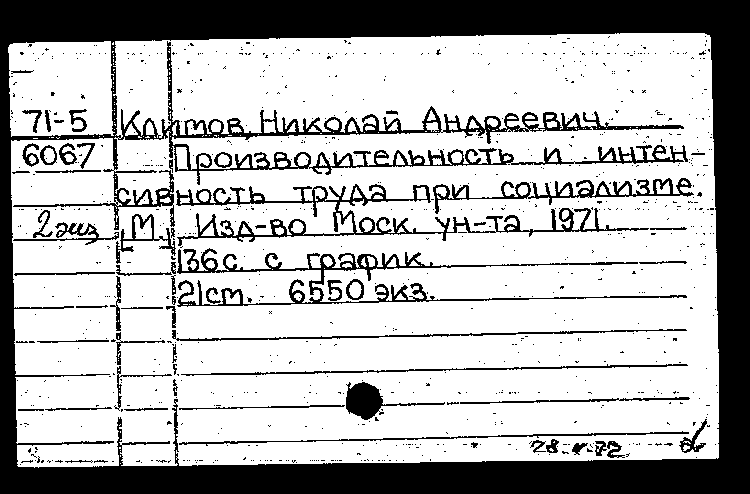 71-5 Климов, Николай Андреевич.
6067 Производительность и интен-
сивность труда при социализме.
2 экз [М.], Изд-во Моск. ун-та, 1971.
136 с. с график.
21 см. 6550 экз.
28-V-72